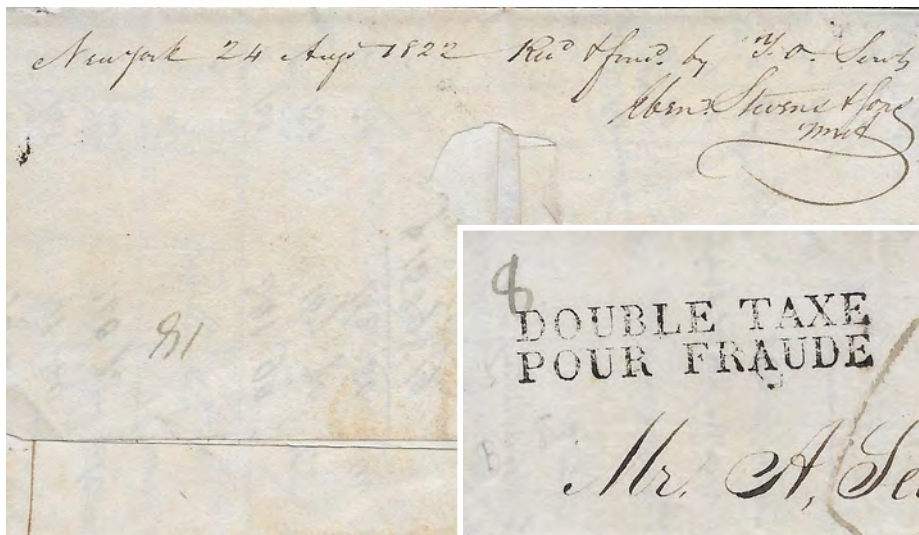 Newyork 24 Augt 1822 Recd & forwd. by Y. O. Servts
Eben. Stevens & Sons
81
8
DOUBLE TAXE
POUR FRAUDE
Mr. A, Se